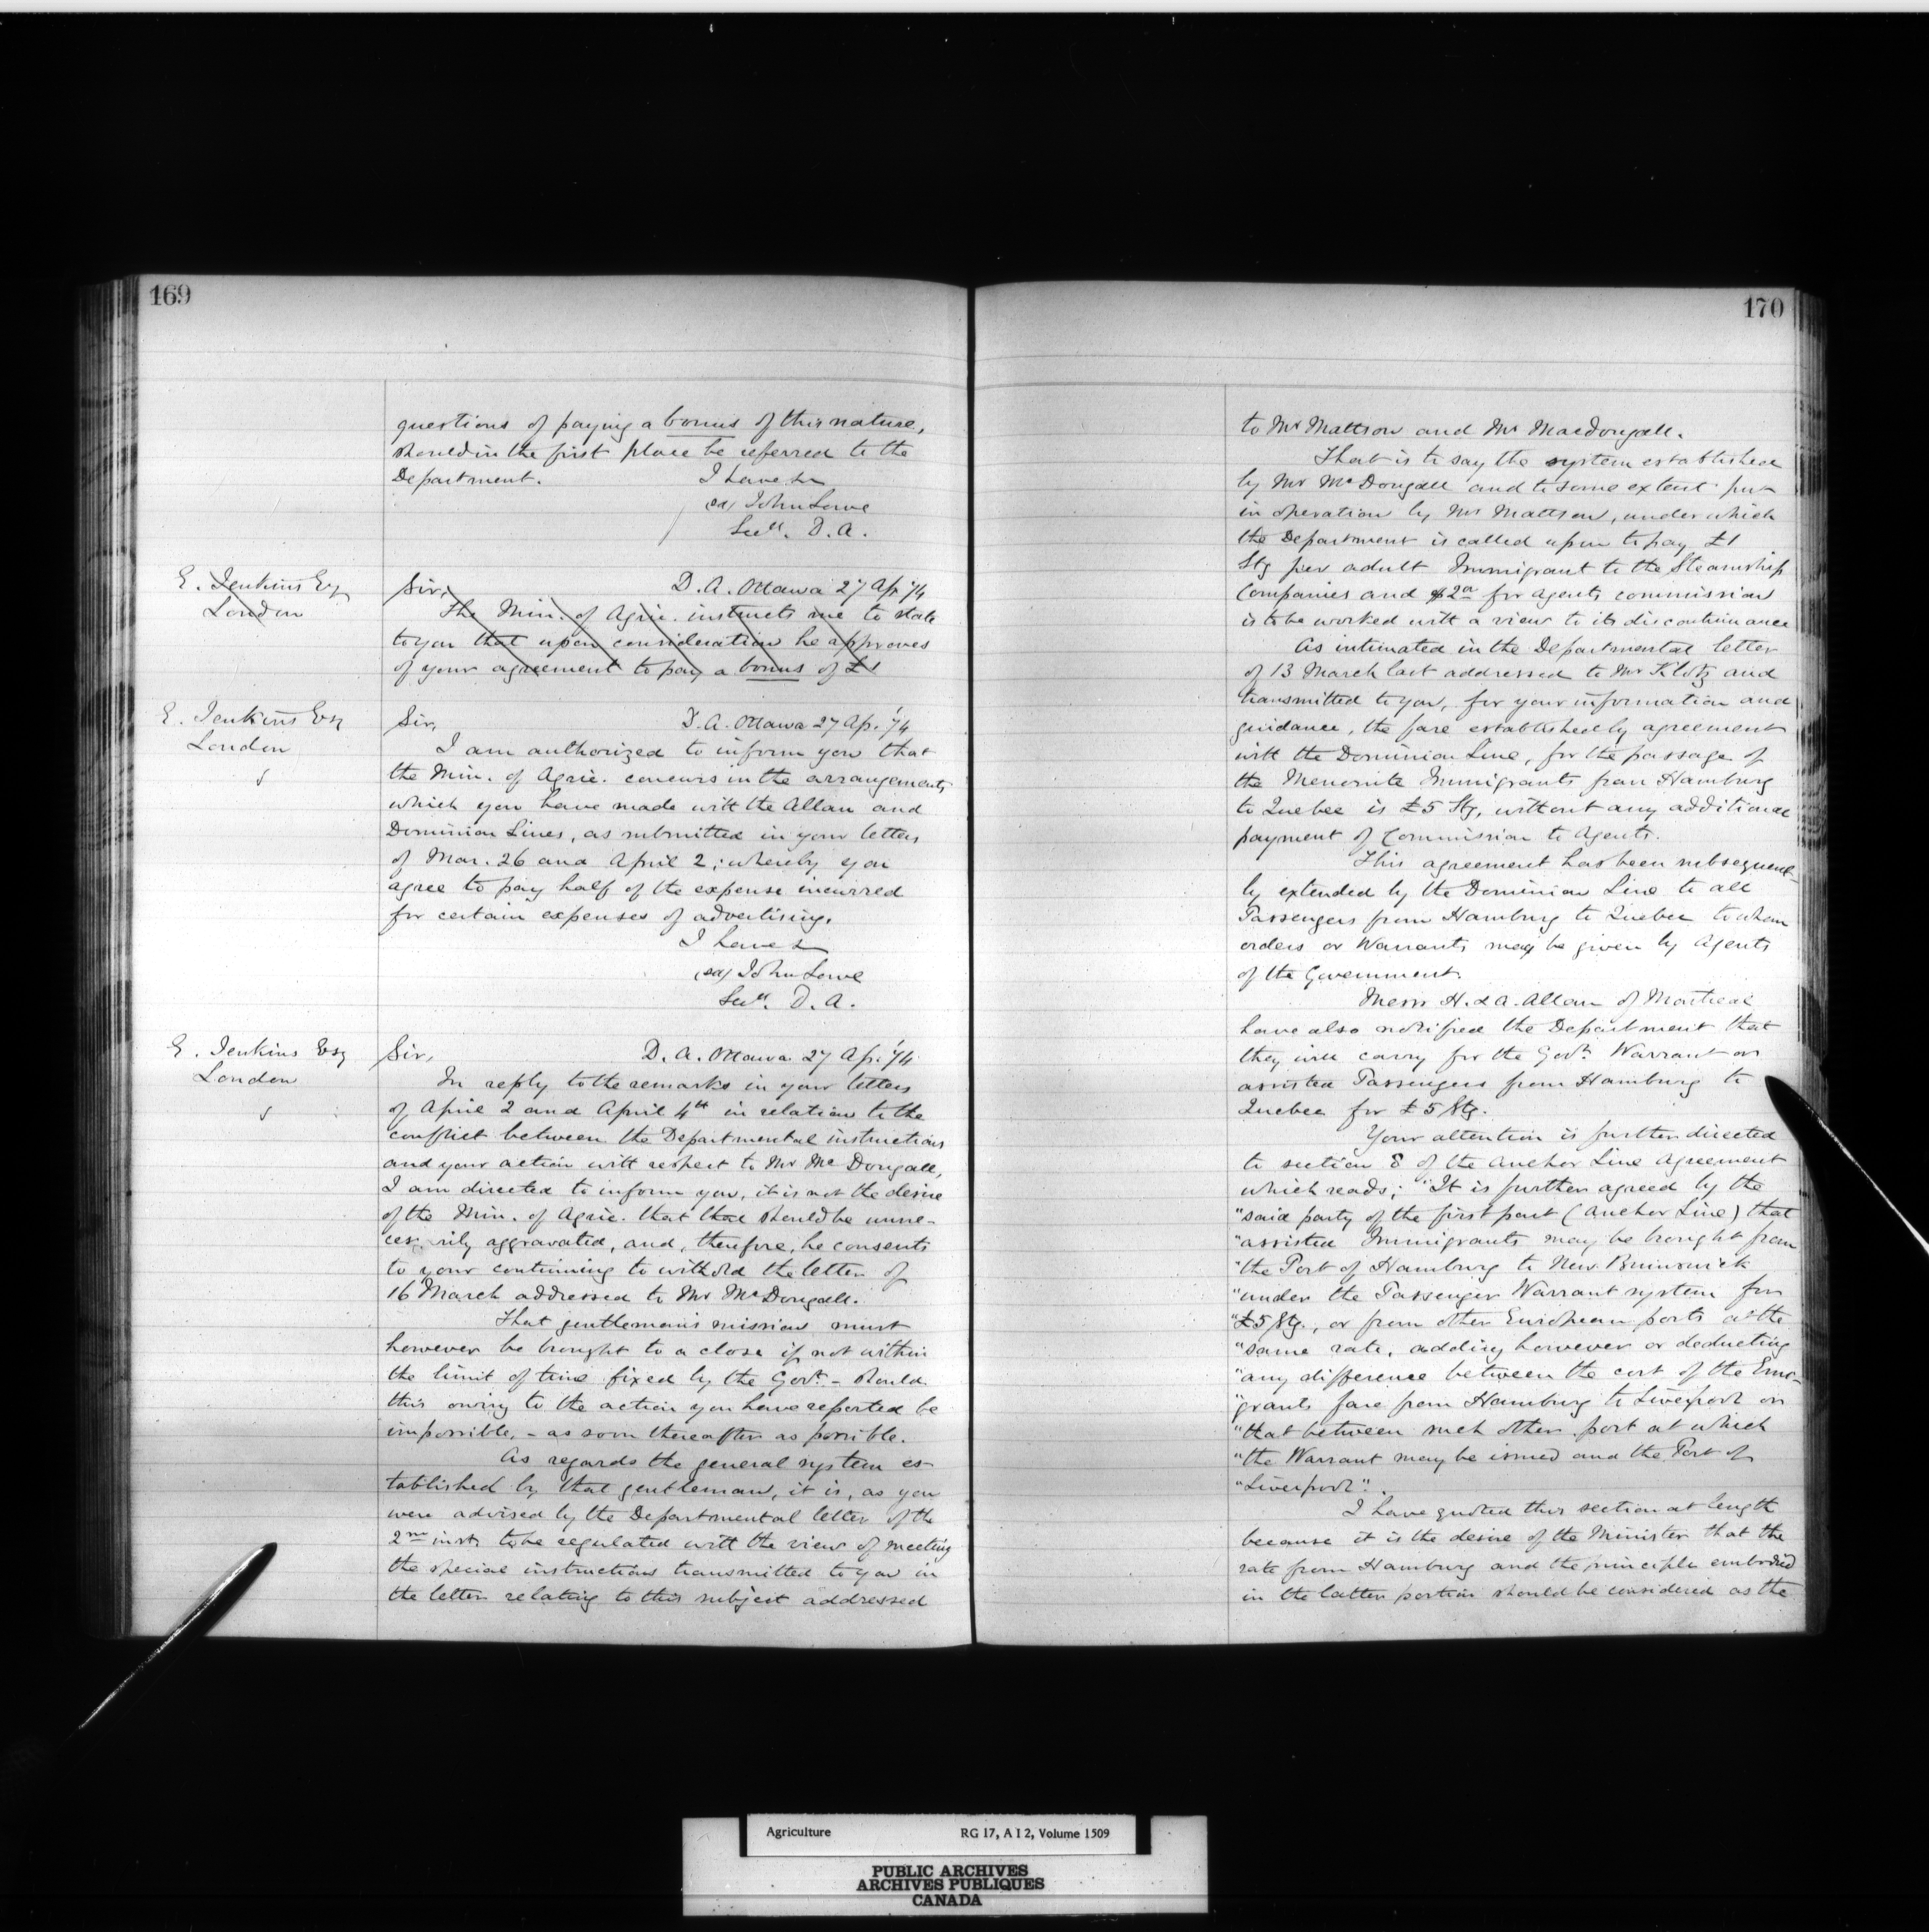 169
questions of paying a bonus of this nature,
should in the first place be referred to the
Department. I have &c
(sd) John Lowe
Secy. D. A.
E. Jenkins Esq
London
Sir, D. A. Ottawa 27 Ap. '74
The Min. of Agric. instructs me to state
to you that upon consideration he approves
of your agreement to pay a bonus of £1
E. Jenkins Esq
London
Sir, D. A. Ottawa 27 Ap. '74
I am authorized to inform you that
the Min. of Agric. concurs in the arrangements
which you have made with the Allan and
Dominion Lines, as submitted in your letters
of Mar. 26 and April 2; whereby you
agree to pay half of the expense incurred
for certain expenses of advertising.
I have &
(sd) John Lowe
Secy. D. A.
E. Jenkins Esq
London
Sir, D. A. Ottawa 27 Ap. '74
In reply to the remarks in your letters
of April 2 and April 4th in relation to the
conflict between the Departmental instructions
and your action with respect to Mr McDougall,
I am directed to inform you, it is not the desire
of the Min. of Agric. that that should be unne-
ces rily aggravated, and, therefore, he consents
to your continuing to withold the letter of
16 March addressed to Mr McDougall.
That gentleman's mission must
however be brought to a close if not within
the limit of time fixed by the Govt. - should
this owing to the action you have reported be
impossible, - as soon thereafter as possible.
As regards the general system es-
tablished by that gentleman, it is, as you
were advised by the Departmental letter of the
2nd inst. to be regulated with the view of meeting
the special instructions transmitted to you in
the letter relating to this subject addressed
170
to Mr Mattson and Mr Macdougall.
That is to say the system established
by Mr McDougall and to some extent put
in operation by Mr Mattson, under which
the Department is called upon to pay £1
Stg per adult Immigrant to the Steamship
Companies and $2 for agents commission
is to be worked with a view to its discontinuance
As intimated in the Departmental letter
of 13 March last addressed to Mr Klotz and
transmitted to you, for your information and
guidance, the fare established by agreement
with the Dominion Line, for the passage of
the Menonite Immigrants from Hamburg
to Quebec is £5 Stg, without any additional
payment of Commission to Agents.
This agreement has been subsequent-
ly extended by the Dominion Line to all
Passengers from Hamburg to Quebec to whom
orders or Warrants may be given by Agents
of the Government.
Messrs H. & A. Allan of Montreal
have also notified the Department that
they will carry for the Govt. Warrant or
assisted Passengers from Hamburg to
Quebec for £5 Stg.
Your attention is further directed
to section 8 of the Anchor Line Agreement
which reads; "It is further agreed by the
"said party of the first part (Anchor Line) that
"assisted Immigrants may be brought from
"the Port of Hamburg to New Brunswick
"under the Passenger Warrant system for
"£5 Stg., or from other European ports at the
"same rate, adding however or deducting
"any difference between the cost of the Emi-
"grants fare from Hamburg to Liverpool or
"that between such other port at which
"the Warrant may be issued and the Port of
"Liverpool".
I have quoted this section at length
because it is the desire of the Minister that the
rate from Hamburg and the principle embodied
in the latter portion should be considered as the
Agriculture RG 17, A I 2, Volume 1509
PUBLIC ARCHIVES
ARCHIVES PUBLIQUES
CANADA